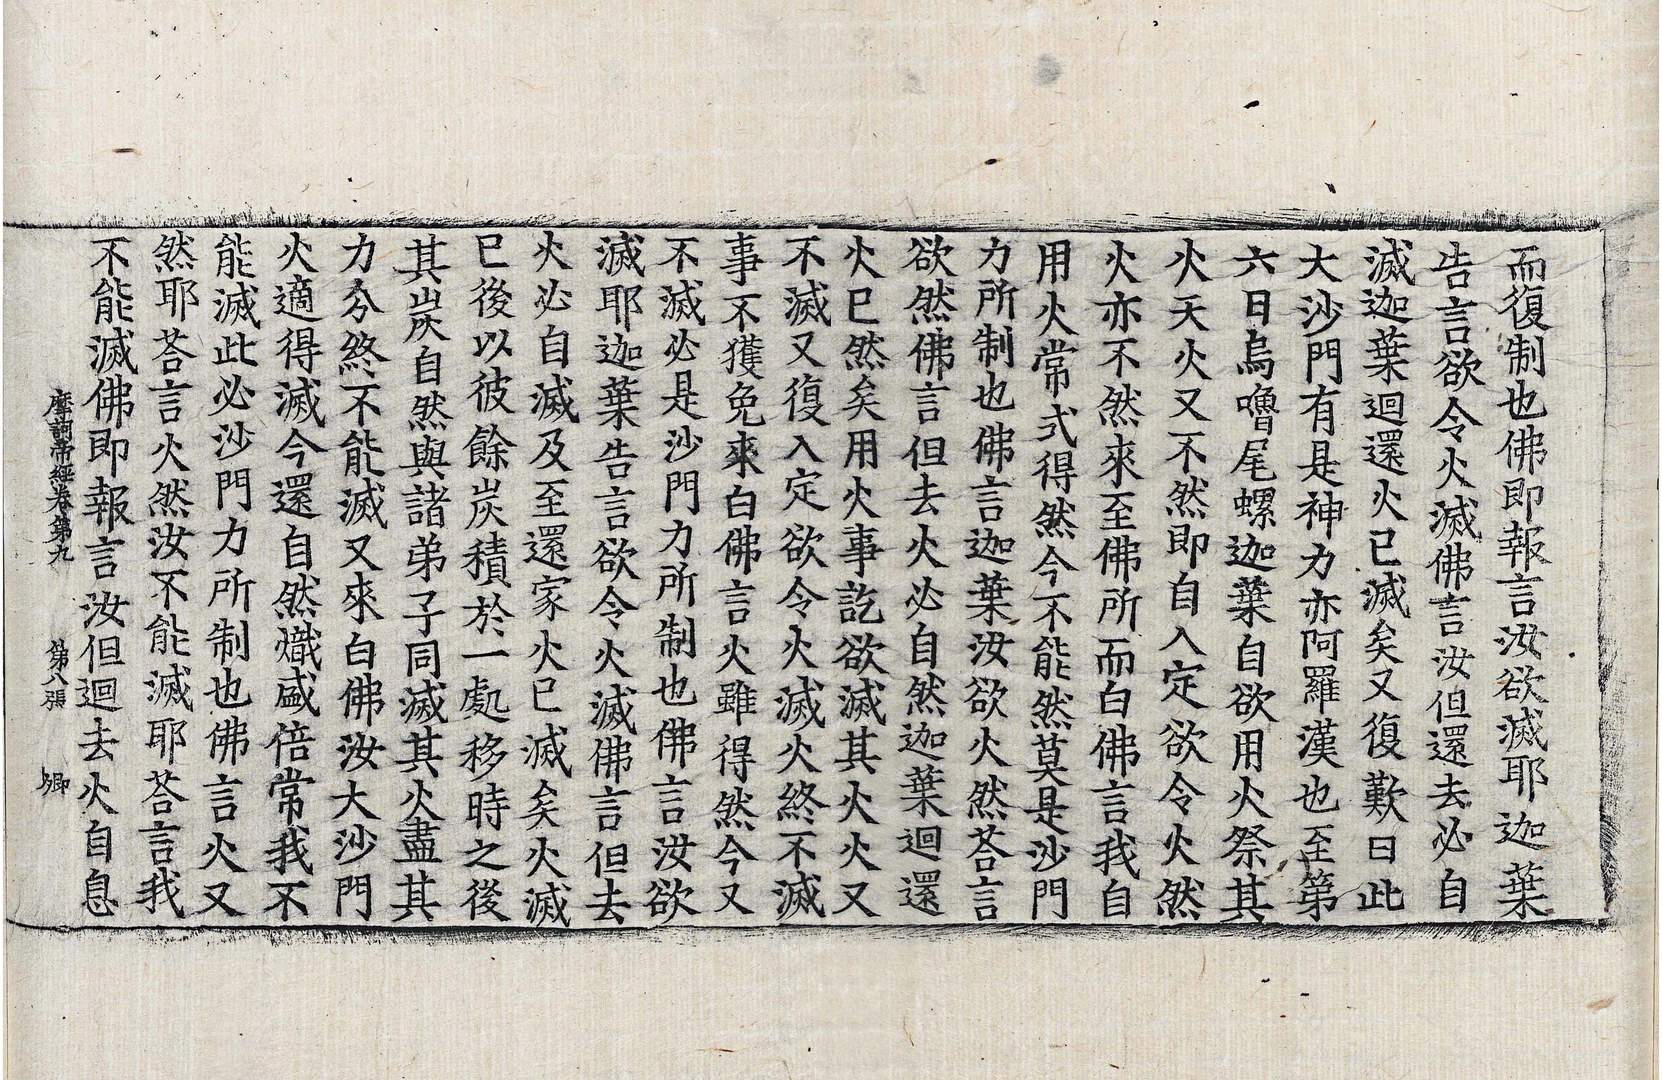 而復制也佛即報言汝欲滅耶迦葉
告言欲令火滅佛言汝但還去必自
滅迦葉迴還火已滅矣又復歎曰此
大沙門有是神力亦阿羅漢也至第
六日烏嚕尾螺迦葉自欲用火祭其
火天火又不然即自入定欲令火然
火亦不然來至佛所而白佛言我自
用火常式得然今不能然莫是沙門
力所制也佛言迦葉汝欲火然荅言
欲然佛言但去火必自然迦葉迴還
火已然矣用火事訖欲滅其火火又
不滅又復入定欲令火滅火終不滅
事不獲免來白佛言火雖得然今又
不滅必是沙門力所制也佛言汝欲
滅耶迦葉告言欲令火滅佛言但去
火必自滅及至還家火已滅矣火滅
已後以彼餘炭積於一處移時之後
其炭自然與諸弟子同滅其火盡其
力分終不能滅又來白佛汝大沙門
火適得滅今還自然熾盛倍常我不
能滅此必沙門力所制也佛言火又
然耶荅言火然汝不能滅耶荅言我
不能滅佛即報言汝但迴去火自息
摩訶帝經卷第九 第八張 卿